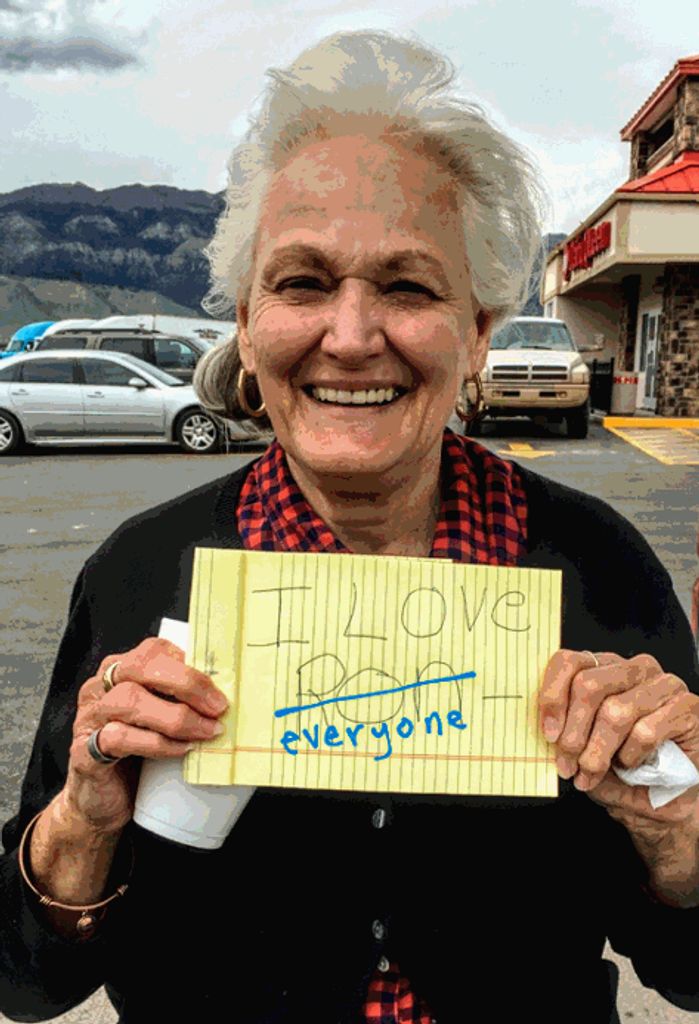 I LOVe
Ron -
everyone